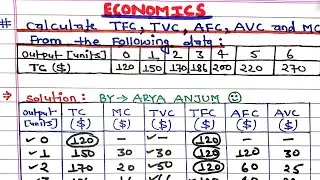 ECONOMICS
# Calculate TFC, TVC, AFC, AVC and MC
From the following data:
Output [units] 0 1 2 3 4 5 6
TC ($) 120 150 170 186 200 220 270
→ Solution: BY→ ARYA ANJUM ☺
output [units] TC ($) MC ($) TVC ($) TFC ($) AFC ($) AVC ($)
✓ 0 120 — ✓— 120 — —
✓ 1 150 30 ✓30 120 120 30
✓ 2 170 20 ✓50 120 60 25